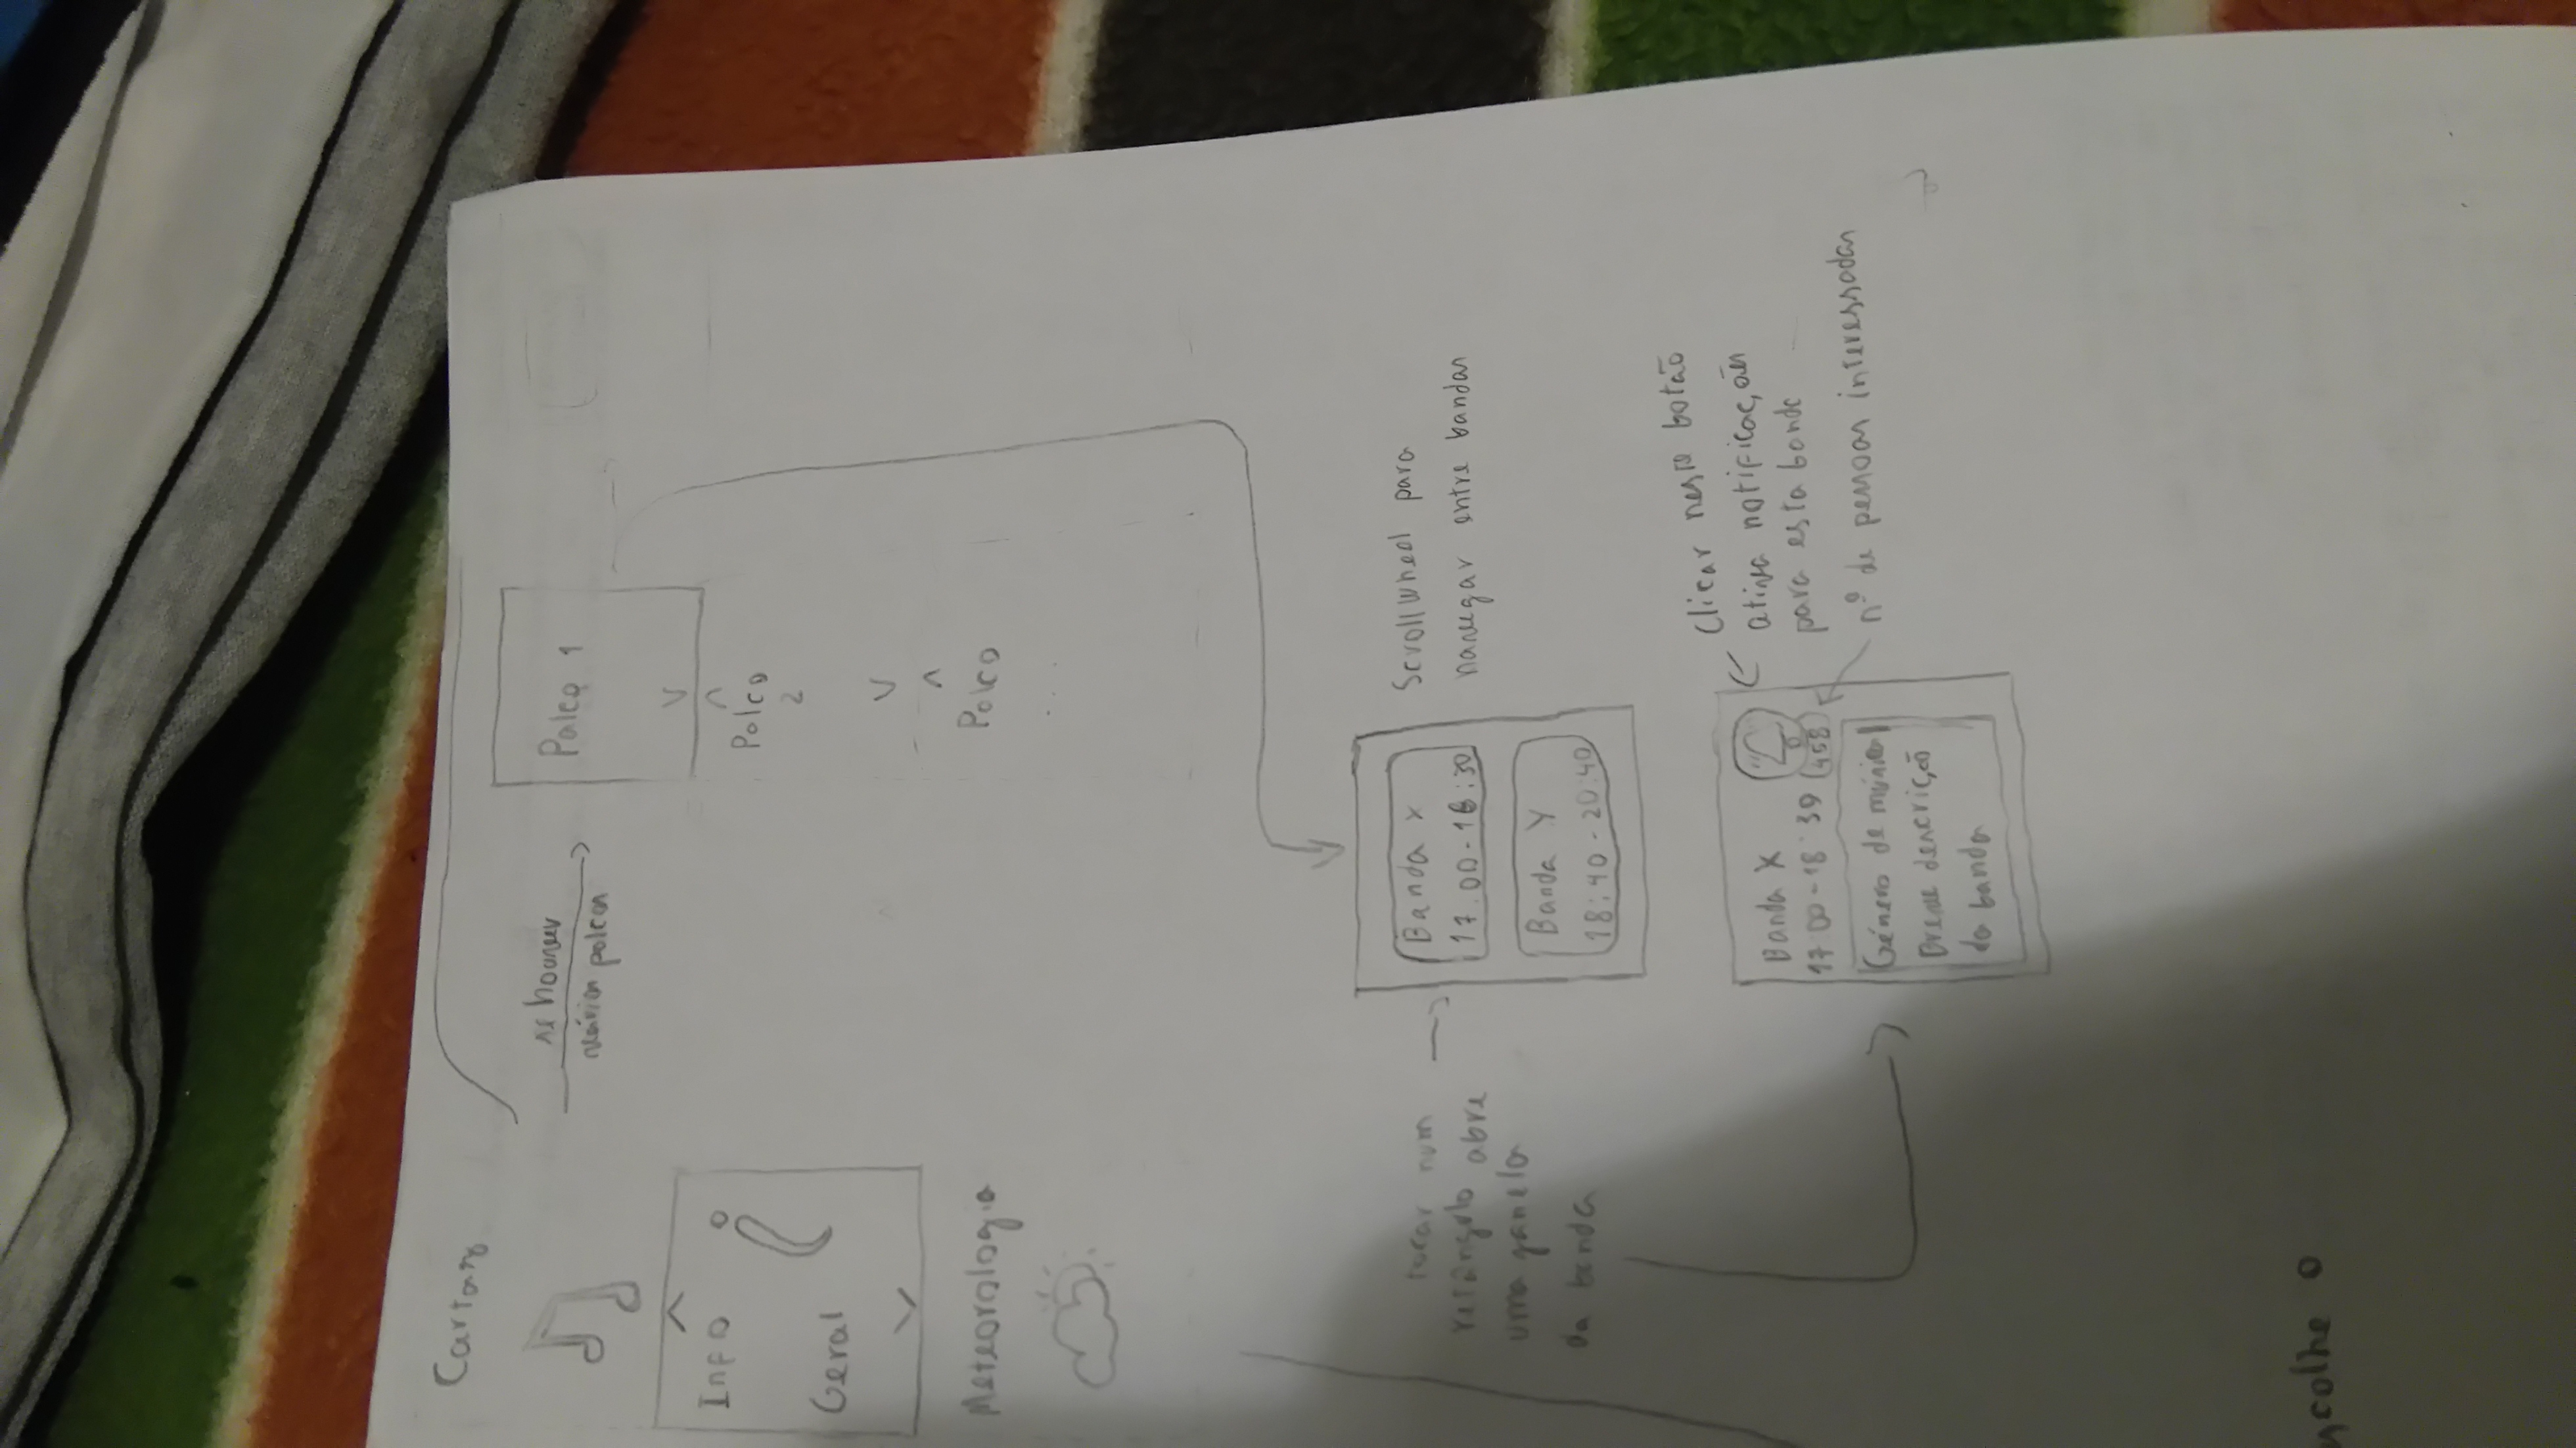 Cartaz
se houver
vários palcos
Palco 1
Info
Geral
Palco
2
Meteorologia
Palco
...
tocar num
retângulo abre
uma janela
da banda
Banda X
17:00-18:30
Banda Y
18:40-20:40
Scrollwheel para
navegar entre bandas
Banda X
17:00-18:30
458
Género de música
Breve descrição
da banda
Clicar neste botão
ativa notificações
para esta banda
nº de pessoas interessadas
scolhe o